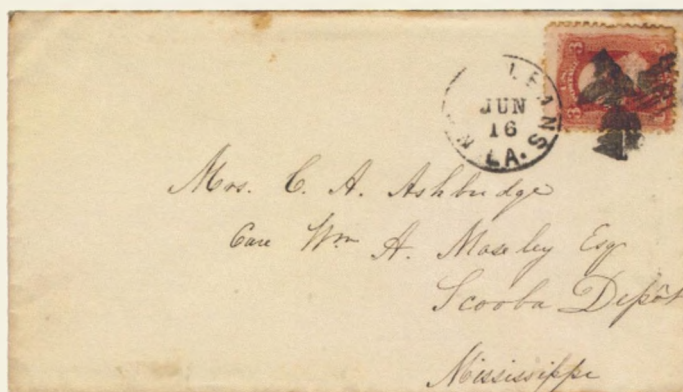 LEANS
JUN
16
LA.
3
Mrs. C. A. Ashbridge
Care Wm A. Moseley Esq
Scooba Depôt
Mississippi